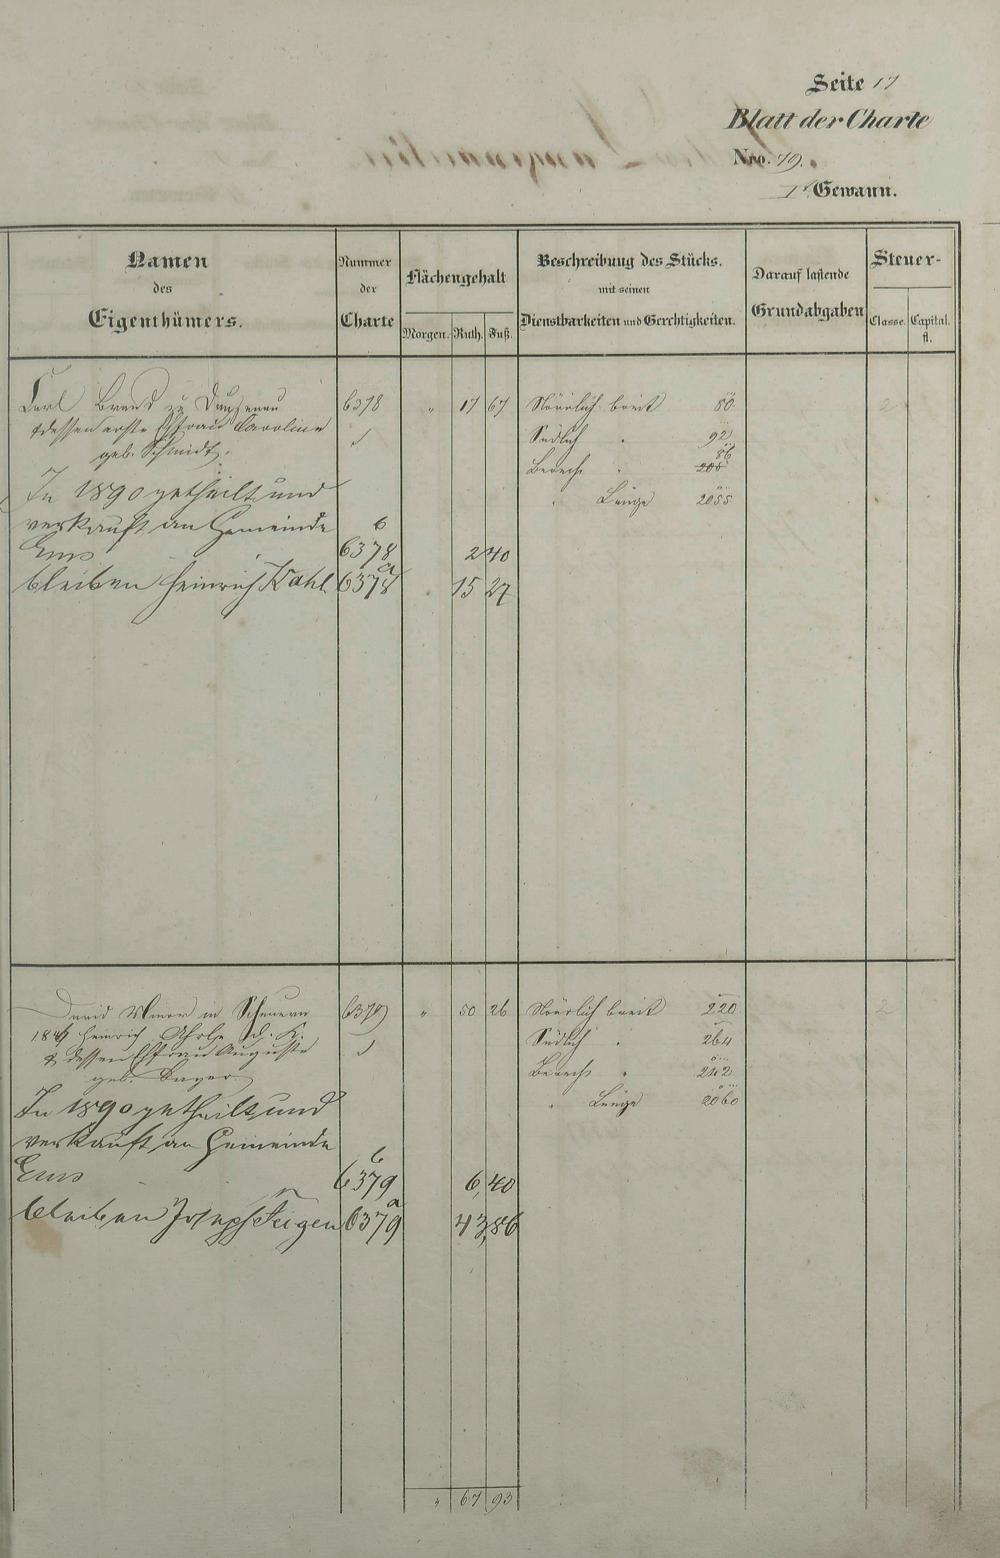 Seite 17
Blatt der Charte
Nro. 79.
1te Gewann.
Namen des Eigenthümers.
Nummer der Charte
Flächengehalt
Morgen. Ruth. Fuß.
Beschreibung des Stücks.
mit seinen
Dienstbarkeiten und Gerechtigkeiten.
Darauf lastende
Grundabgaben
Steuer-
Classe. Capital.
fl.
Carl Brand zu Dausenau 6378 " 17 67 Nördlich breit 80 2
& dessen erste Ehefrau Caroline Südlich " 92
geb. Schmidt. Berech " 86
208
" Länge 2055
In 1890 getheilt und
verkauft an Gemeinde
Ems 6378 b 2 40
bleiben Heinrich Kahl 6378 a 15 27
David Minor in Scheuern 6379 " 50 26 Nördlich breit 220 2
Heinrich d. H. Südlich " 264
& dessen Ehefrau Auguste Berech " 242
geb. Bayer " Länge 2060
In 1890 getheilt und
verkauft an Gemeinde
Ems 6379 b 6,40
bleiben Joseph Feigen 6379 a 43,86
" 67 93